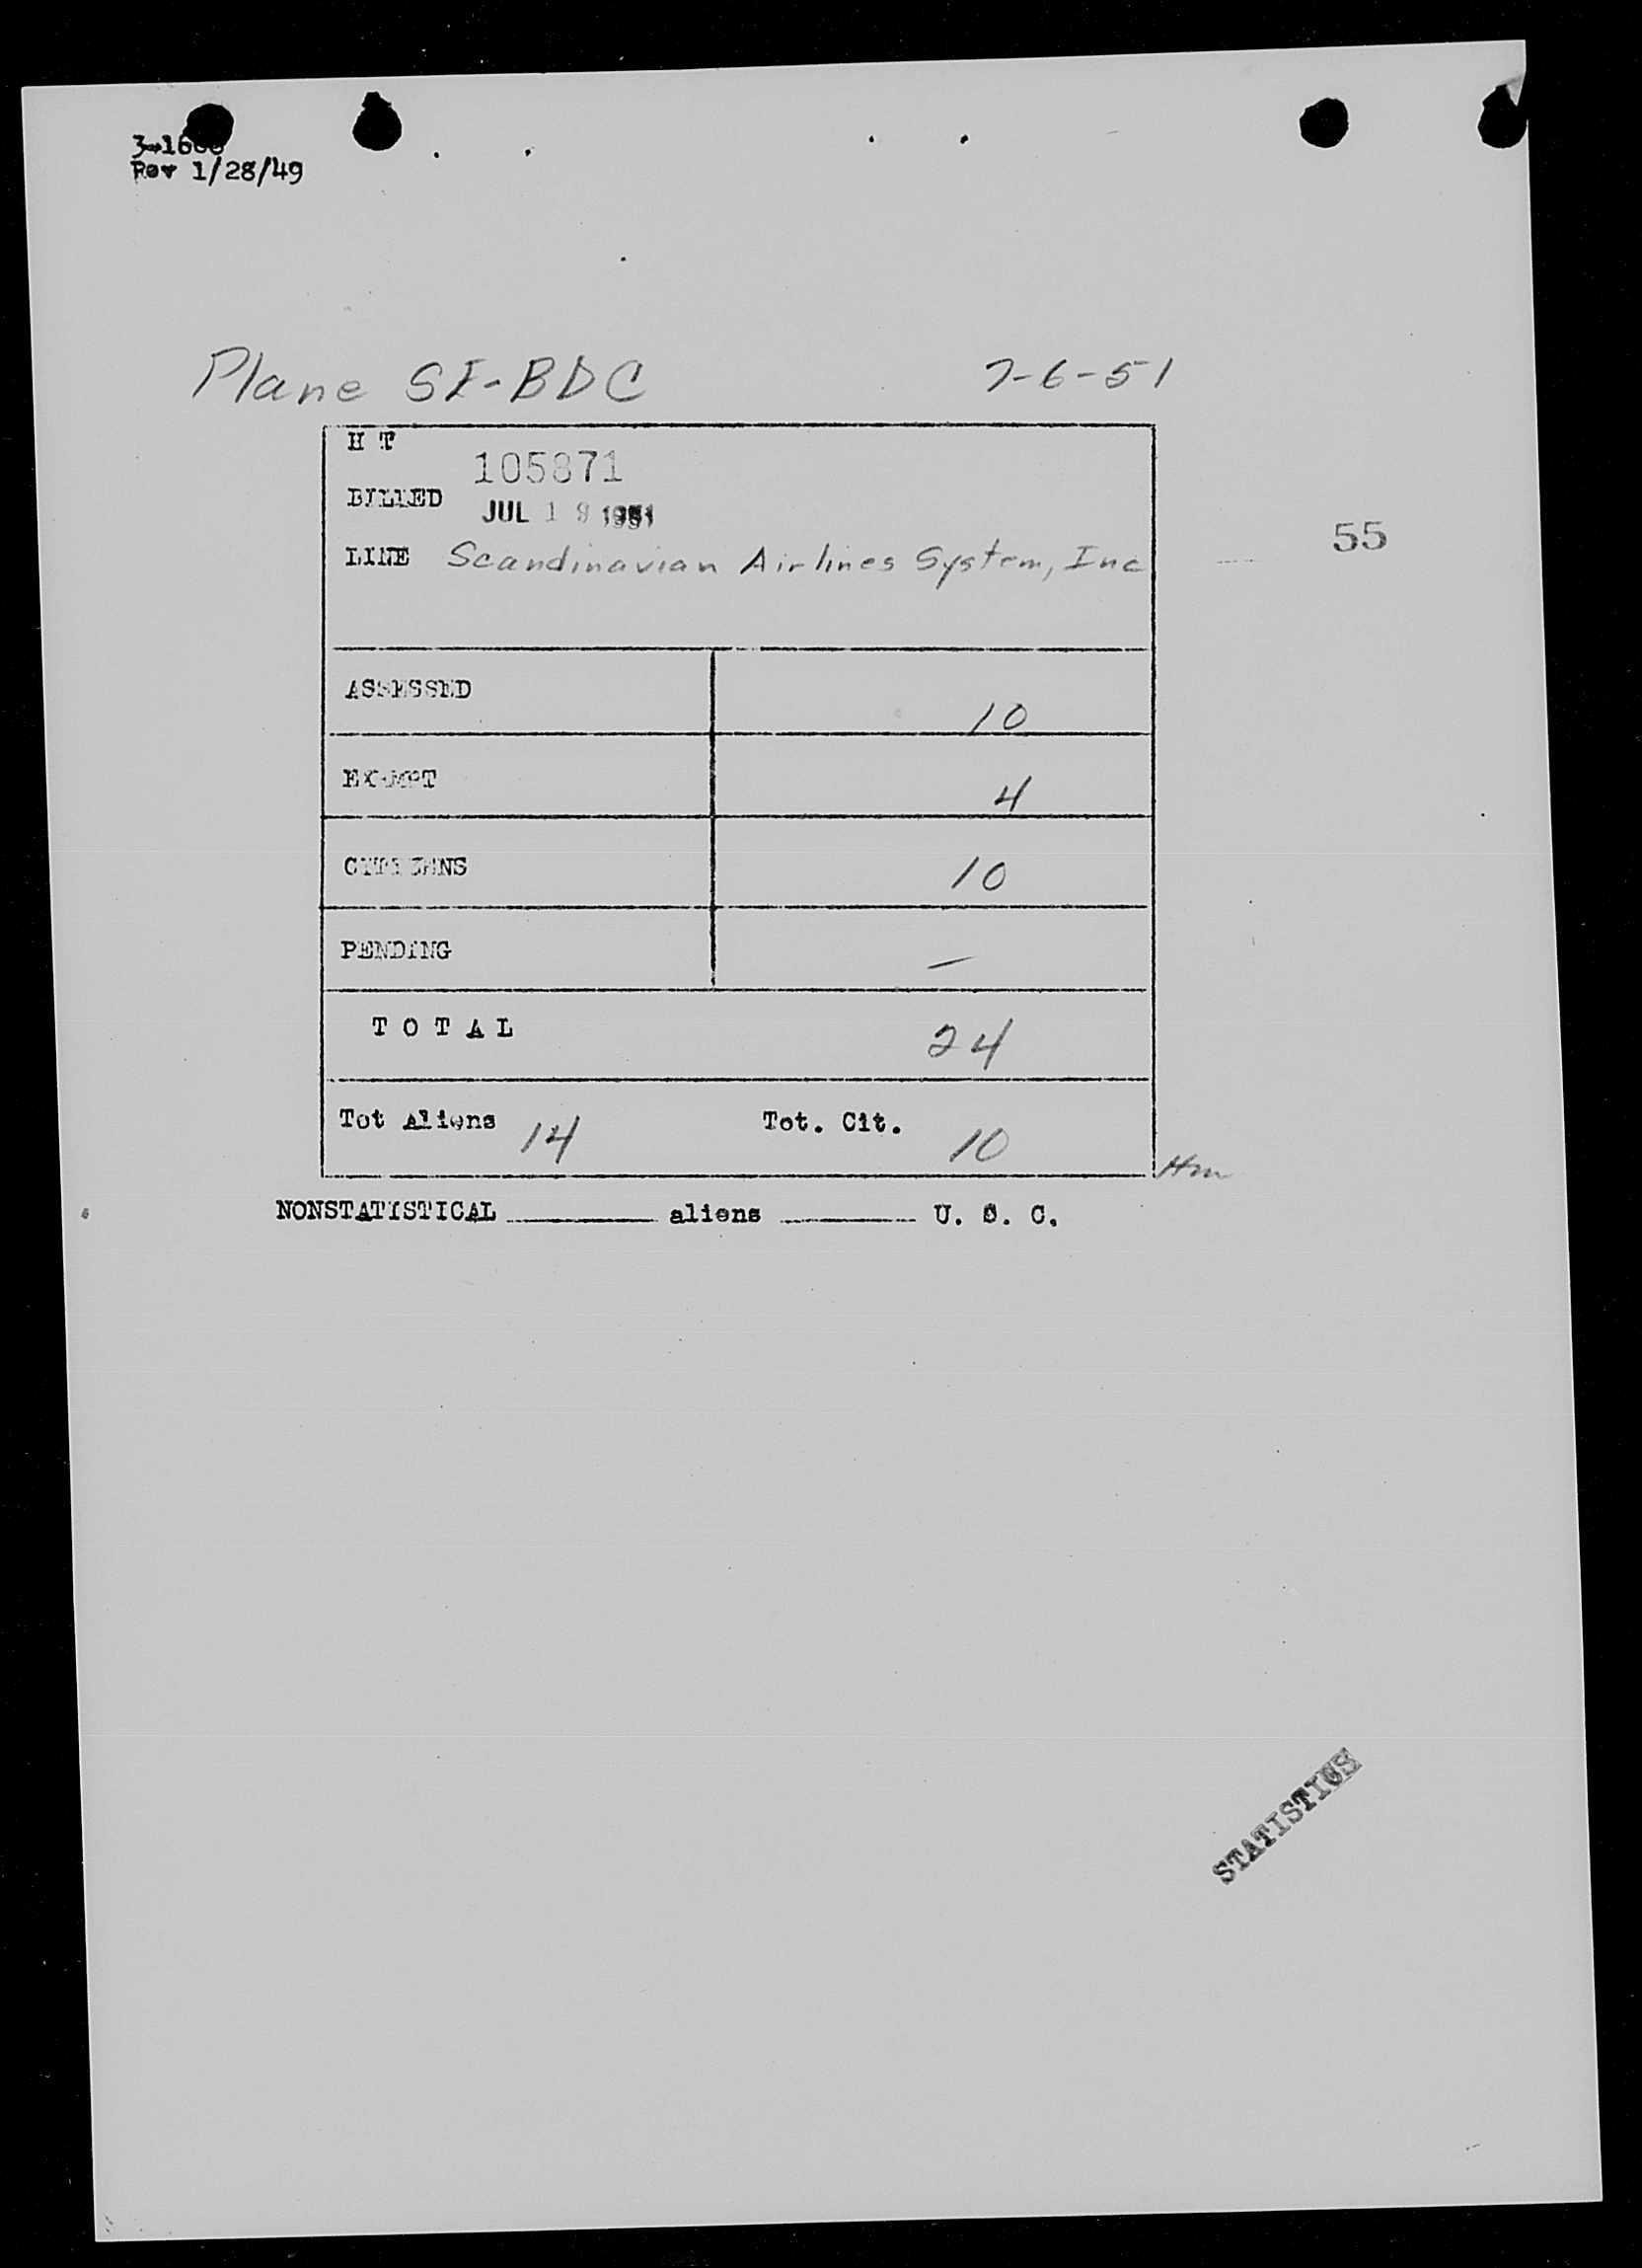 Rev 1/28/49
Plane SE-BDC 7-6-51
H T
105871
BILLED JUL 19 1951
LINE Scandinavian Airlines System, Inc
55
ASSESSED 10
EXEMPT 4
CITIZENS 10
PENDING —
T O T A L 24
Tot Aliens 14 Tot. Cit. 10
NONSTATISTICAL ________ aliens ________ U. S. C.
STATISTICS